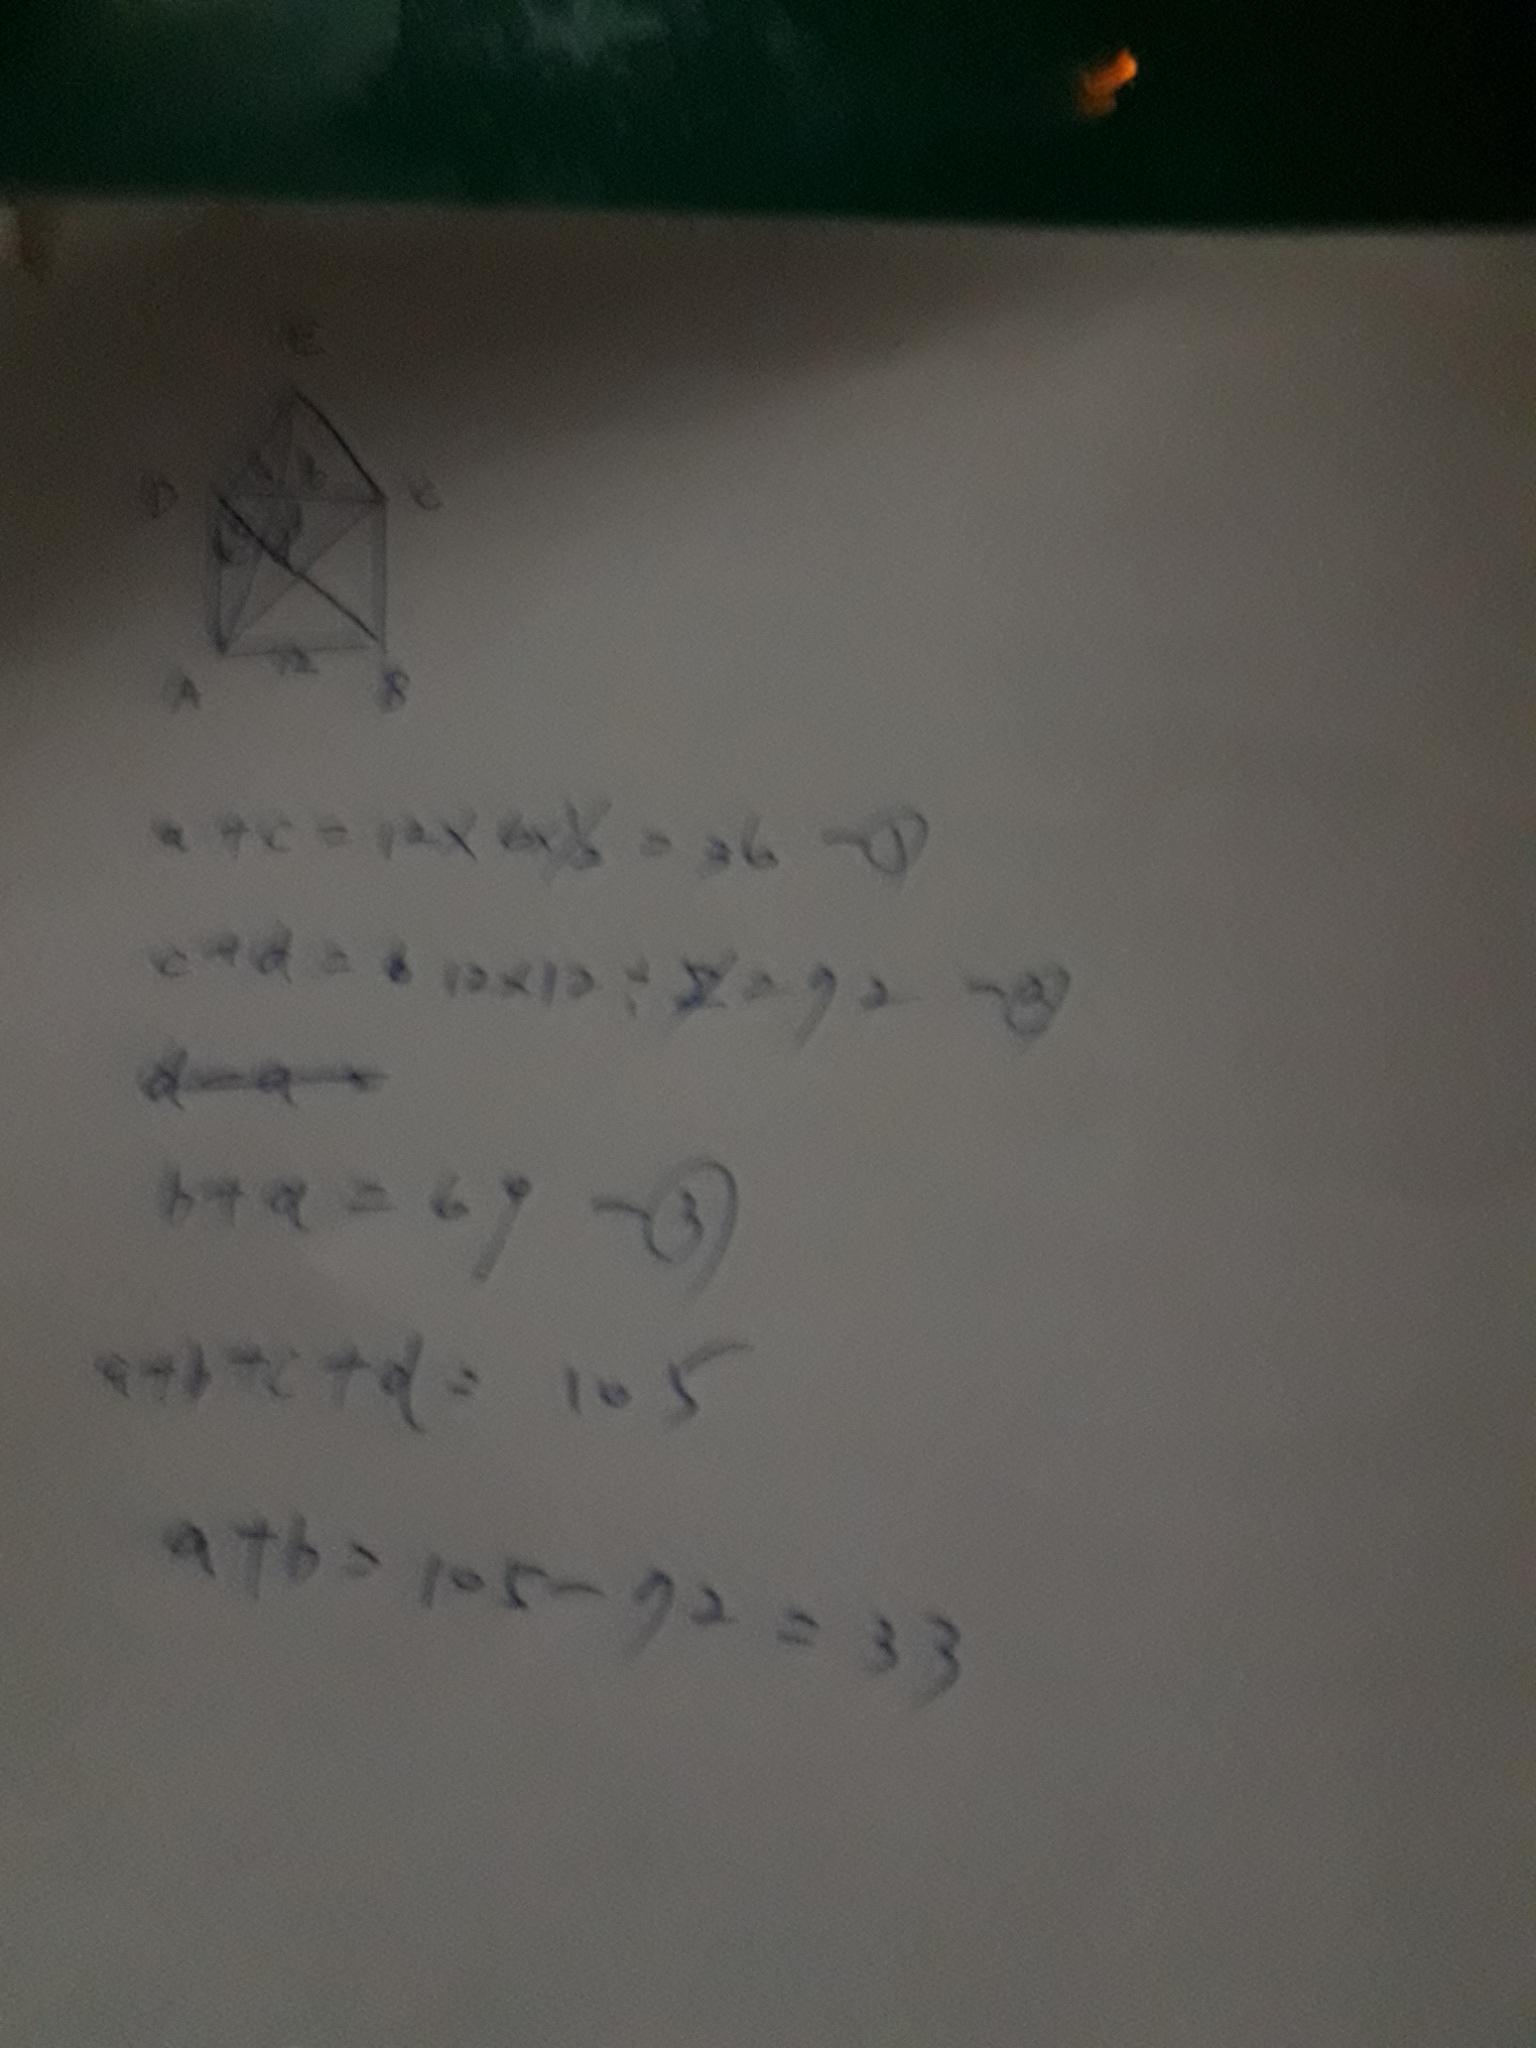 E
D a b C
c d
A 12 B
a + c = 12 x 6 x ½ = 36 - ①
c + d = 12 x 12 ÷ 2 = 72 - ②
d - a
b + d = 69 - ③
a + b + c + d = 105
a + b = 105 - 72 = 33